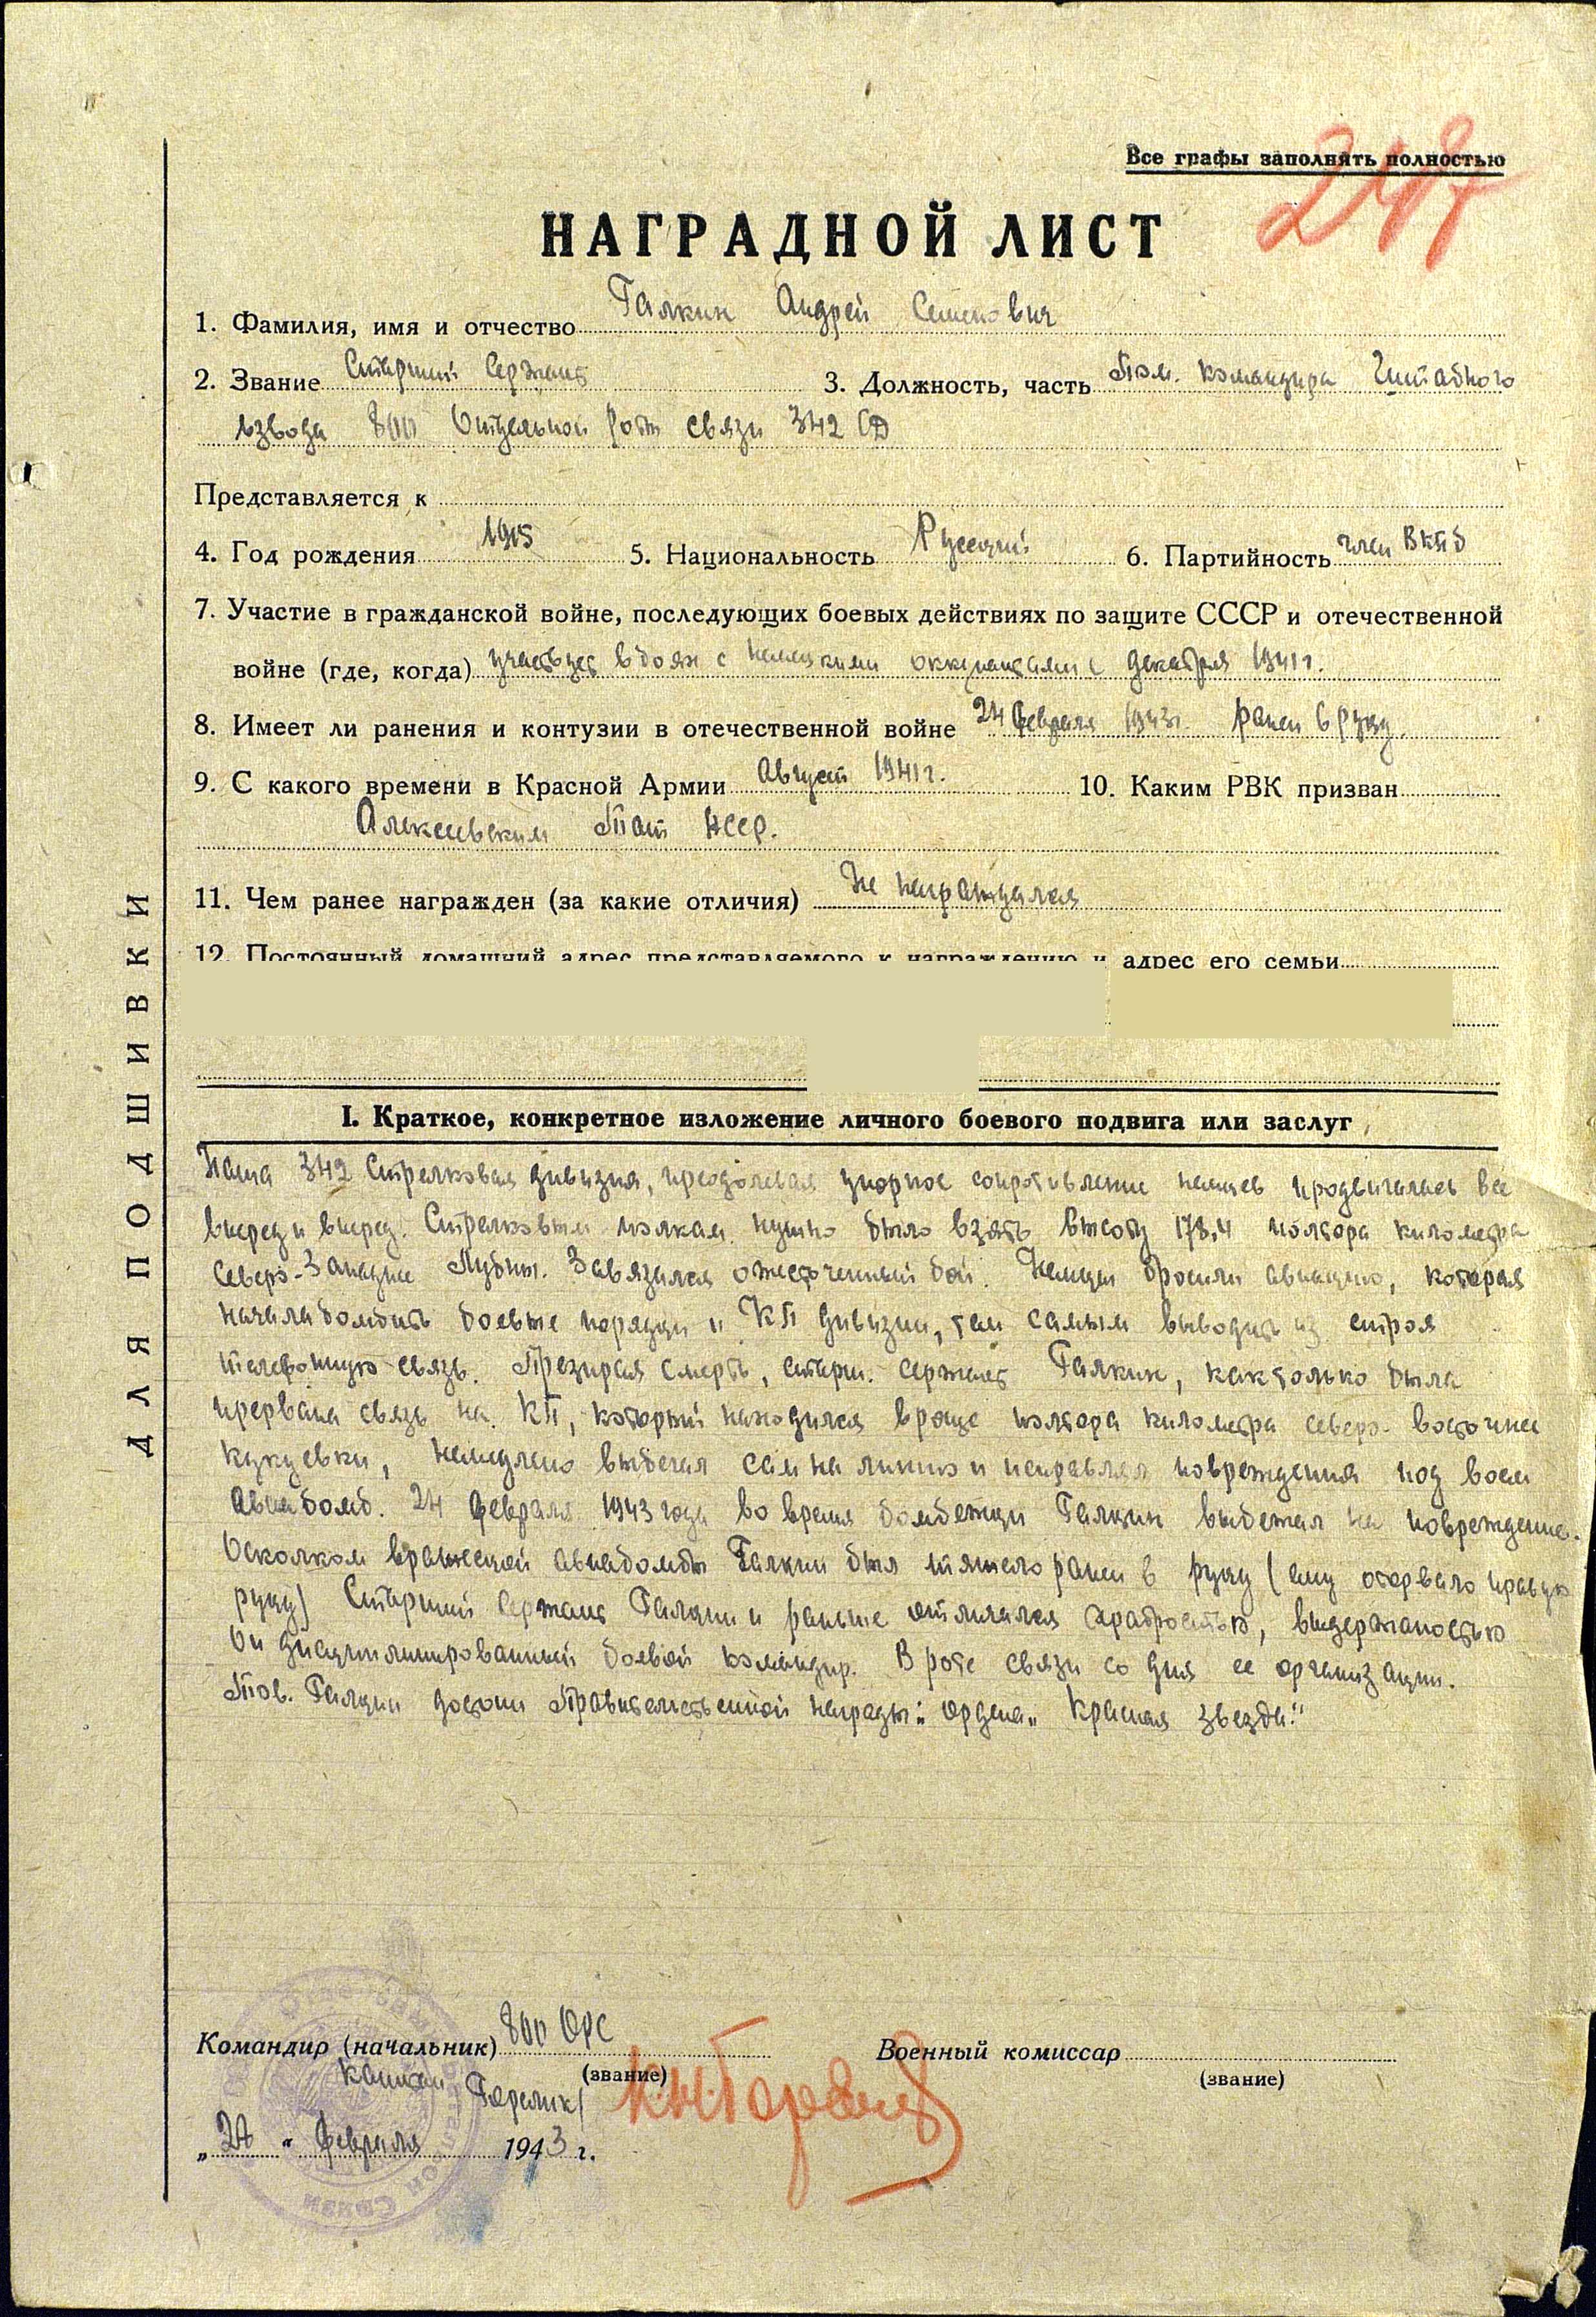 Все графы заполнять полностью
НАГРАДНОЙ ЛИСТ
1. Фамилия, имя и отчество Галкин Андрей Семенович
2. Звание Старший Сержант 3. Должность, часть Пом. командира Штабного
взвода 800 Отдельной роты связи 342 СД
Представляется к
4. Год рождения 1915 5. Национальность Русский 6. Партийность член ВКПб
7. Участие в гражданской войне, последующих боевых действиях по защите СССР и отечественной
войне (где, когда) участвует в боях с немецкими оккупантами с декабря 1941 г.
8. Имеет ли ранения и контузии в отечественной войне 24 февраля 1943г. ранен в руку.
9. С какого времени в Красной Армии Август 1941 г. 10. Каким РВК призван
Алексеевским Тат АССР.
11. Чем ранее награжден (за какие отличия) Не награждался
12. Постоянный домашний адрес представляемого к награждению и адрес его семьи
I. Краткое, конкретное изложение личного боевого подвига или заслуг
Наша 342 Стрелковая дивизия, преодолевая упорное сопротивление немцев продвигалась все
вперед и вперед. Стрелковым полкам нужно было взять высоту 178,4 полтора километра
Северо-Западнее Лубны. Завязался ожесточенный бой. Немцы бросили авиацию, которая
начала бомбить боевые порядки и КП дивизии, тем самым выводить из строя
телефонную связь. Презирая смерть, старш. сержант Галкин, как только была
прервана связь на КП, который находился в роще полтора километра северо-восточнее
Кукуевки, немедлено выбегал сам на линию и исправлял повреждения под воем
авиабомб. 24 февраля 1943 года во время бомбежки Галкин выбежал на повреждение.
Осколком вражеской авиабомбы Галкин был тяжело ранен в руку (ему оторвало правую
руку) Старший Сержант Галкин и раньше отличался храбростью, выдержаностью
Он дисциплинированный боевой командир. В роте связи со дня ее организации.
Тов. Галкин достоин Правительственной награды: ордена „Красная звезда."
Командир (начальник) 800 ОРС Военный комиссар
(звание) (звание)
Капитан Горелик/
„ " февраля 1943 г.
ДЛЯ ПОДШИВКИ